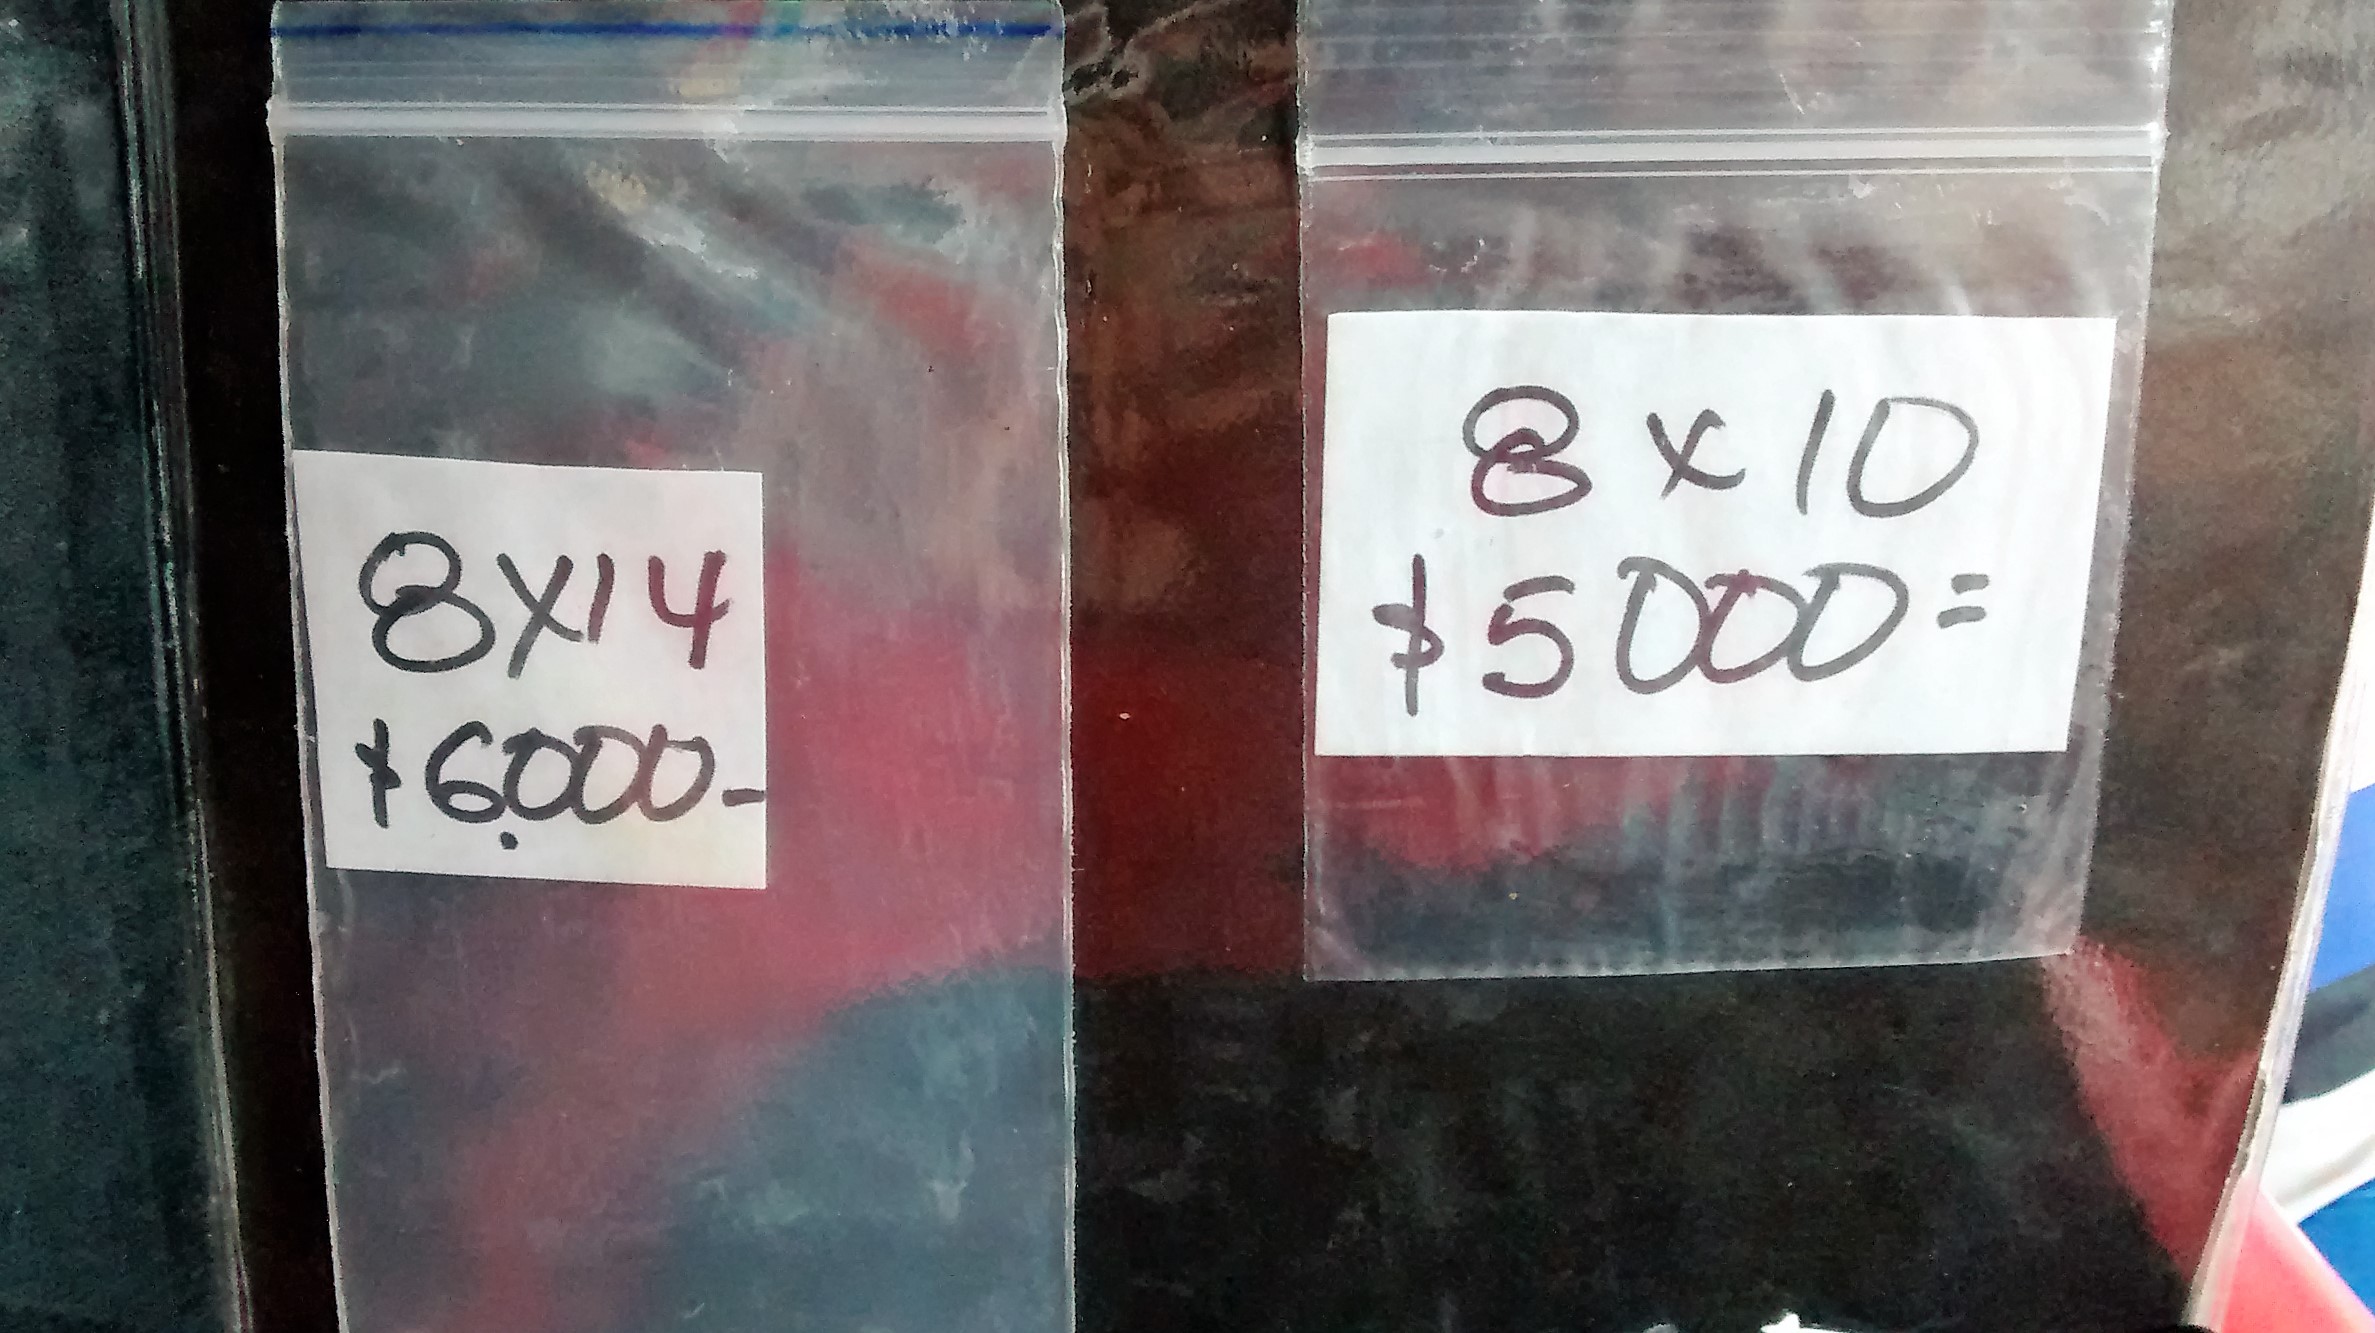 8x14
$6.000-
8 x 10
$5000=